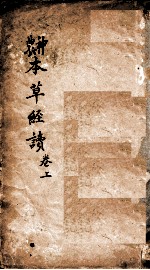 神農本草經讀卷上